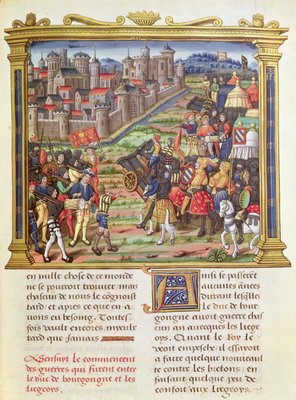 en mille chose de ce monde
ne se pourroit trouver, mais
chascun de nous le cognoist
tard, et apres ce que en a
vons eu besoing. Toutes
fois vault encores, mieulx
tard que jamais
Sensuit le commencement
des guerres qui furent entre
le duc de bourgongne et les
liegeoys.
Ainsi se passerent
aucunes annees
durant lesquelles
le duc de bour
gongne avoit guerre chas
cun an avecques les liege
oys. Et quant le Roy le
veoit empesche, il essayoit
a faire quelque nouveaulte
contre les bretons, en
faisant quelque peu de
confort aux liegeoys.